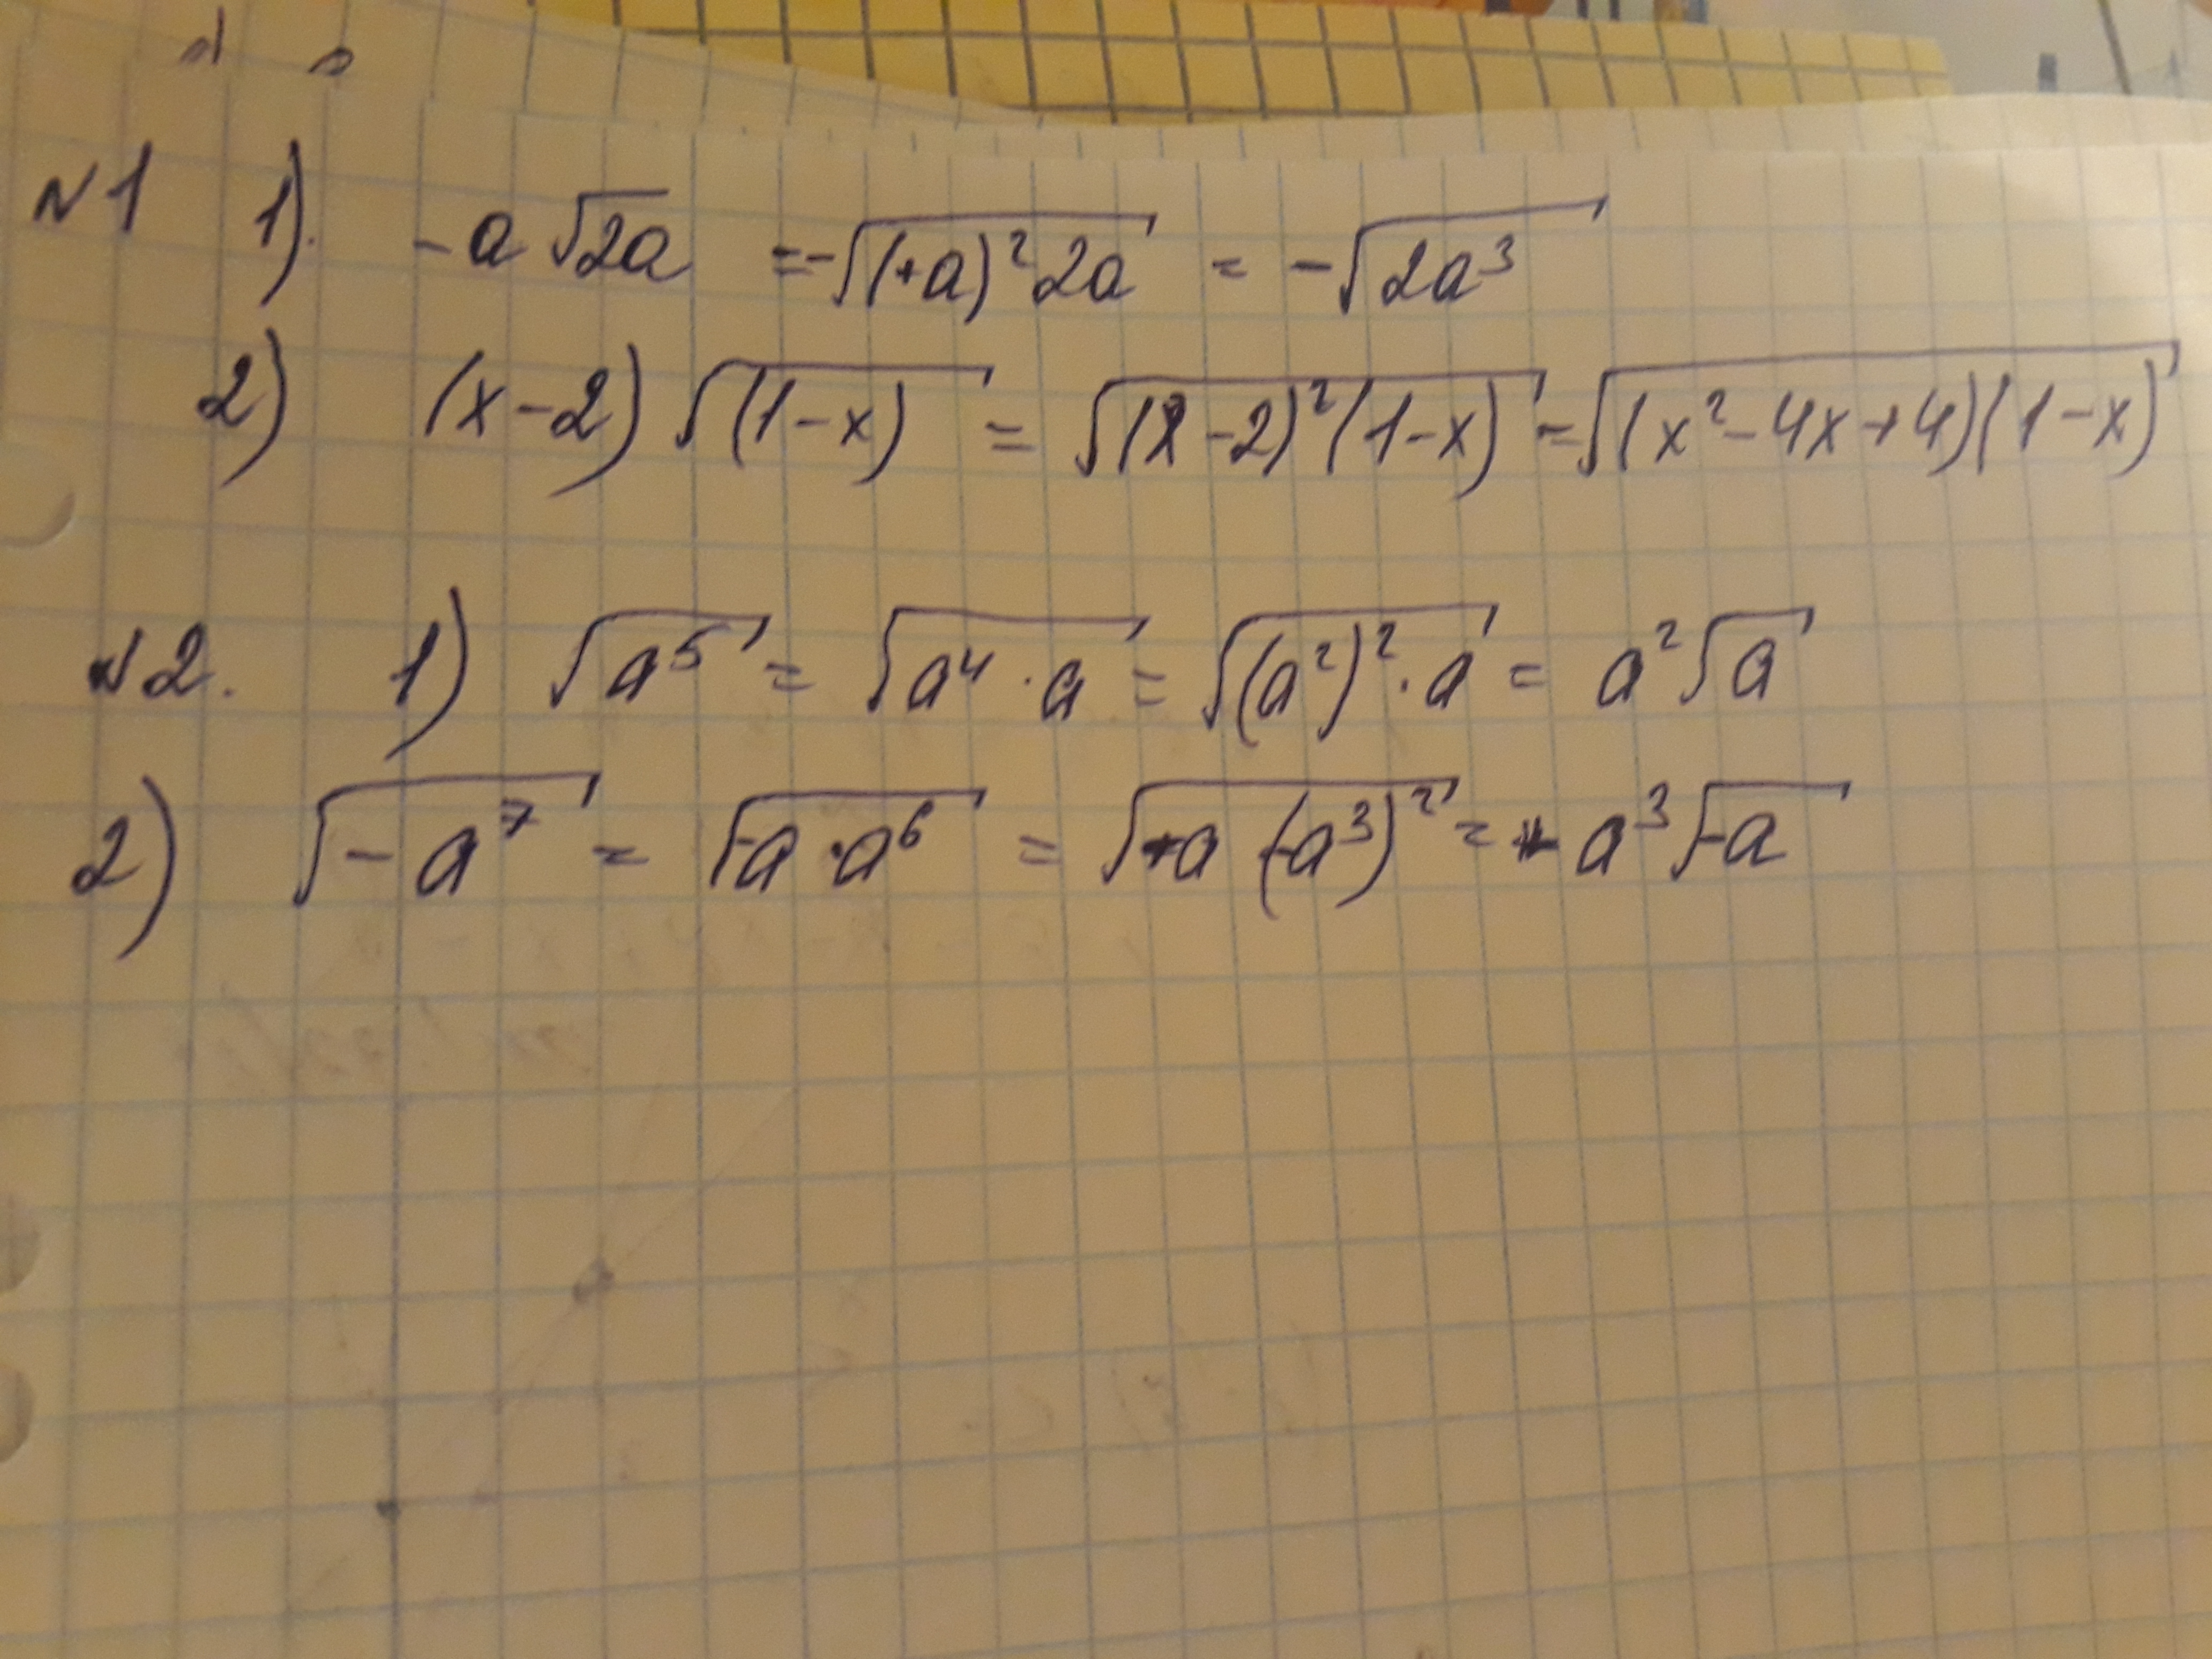 №1 1). -a √2a = -√(+a)² 2a = -√2a³
2) (x-2) √(1-x) = √(x-2)²(1-x) = √(x²-4x+4)(1-x)
№2. 1) √a⁵ = √a⁴·a = √(a²)²·a = a²√a
2) √-a⁷ = √-a·a⁶ = √-a (-a³)² = - a³√-a